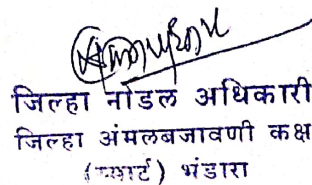 जिल्हा नोडल अधिकारी
जिल्हा अंमलबजावणी कक्ष
(स्मार्ट) भंडारा